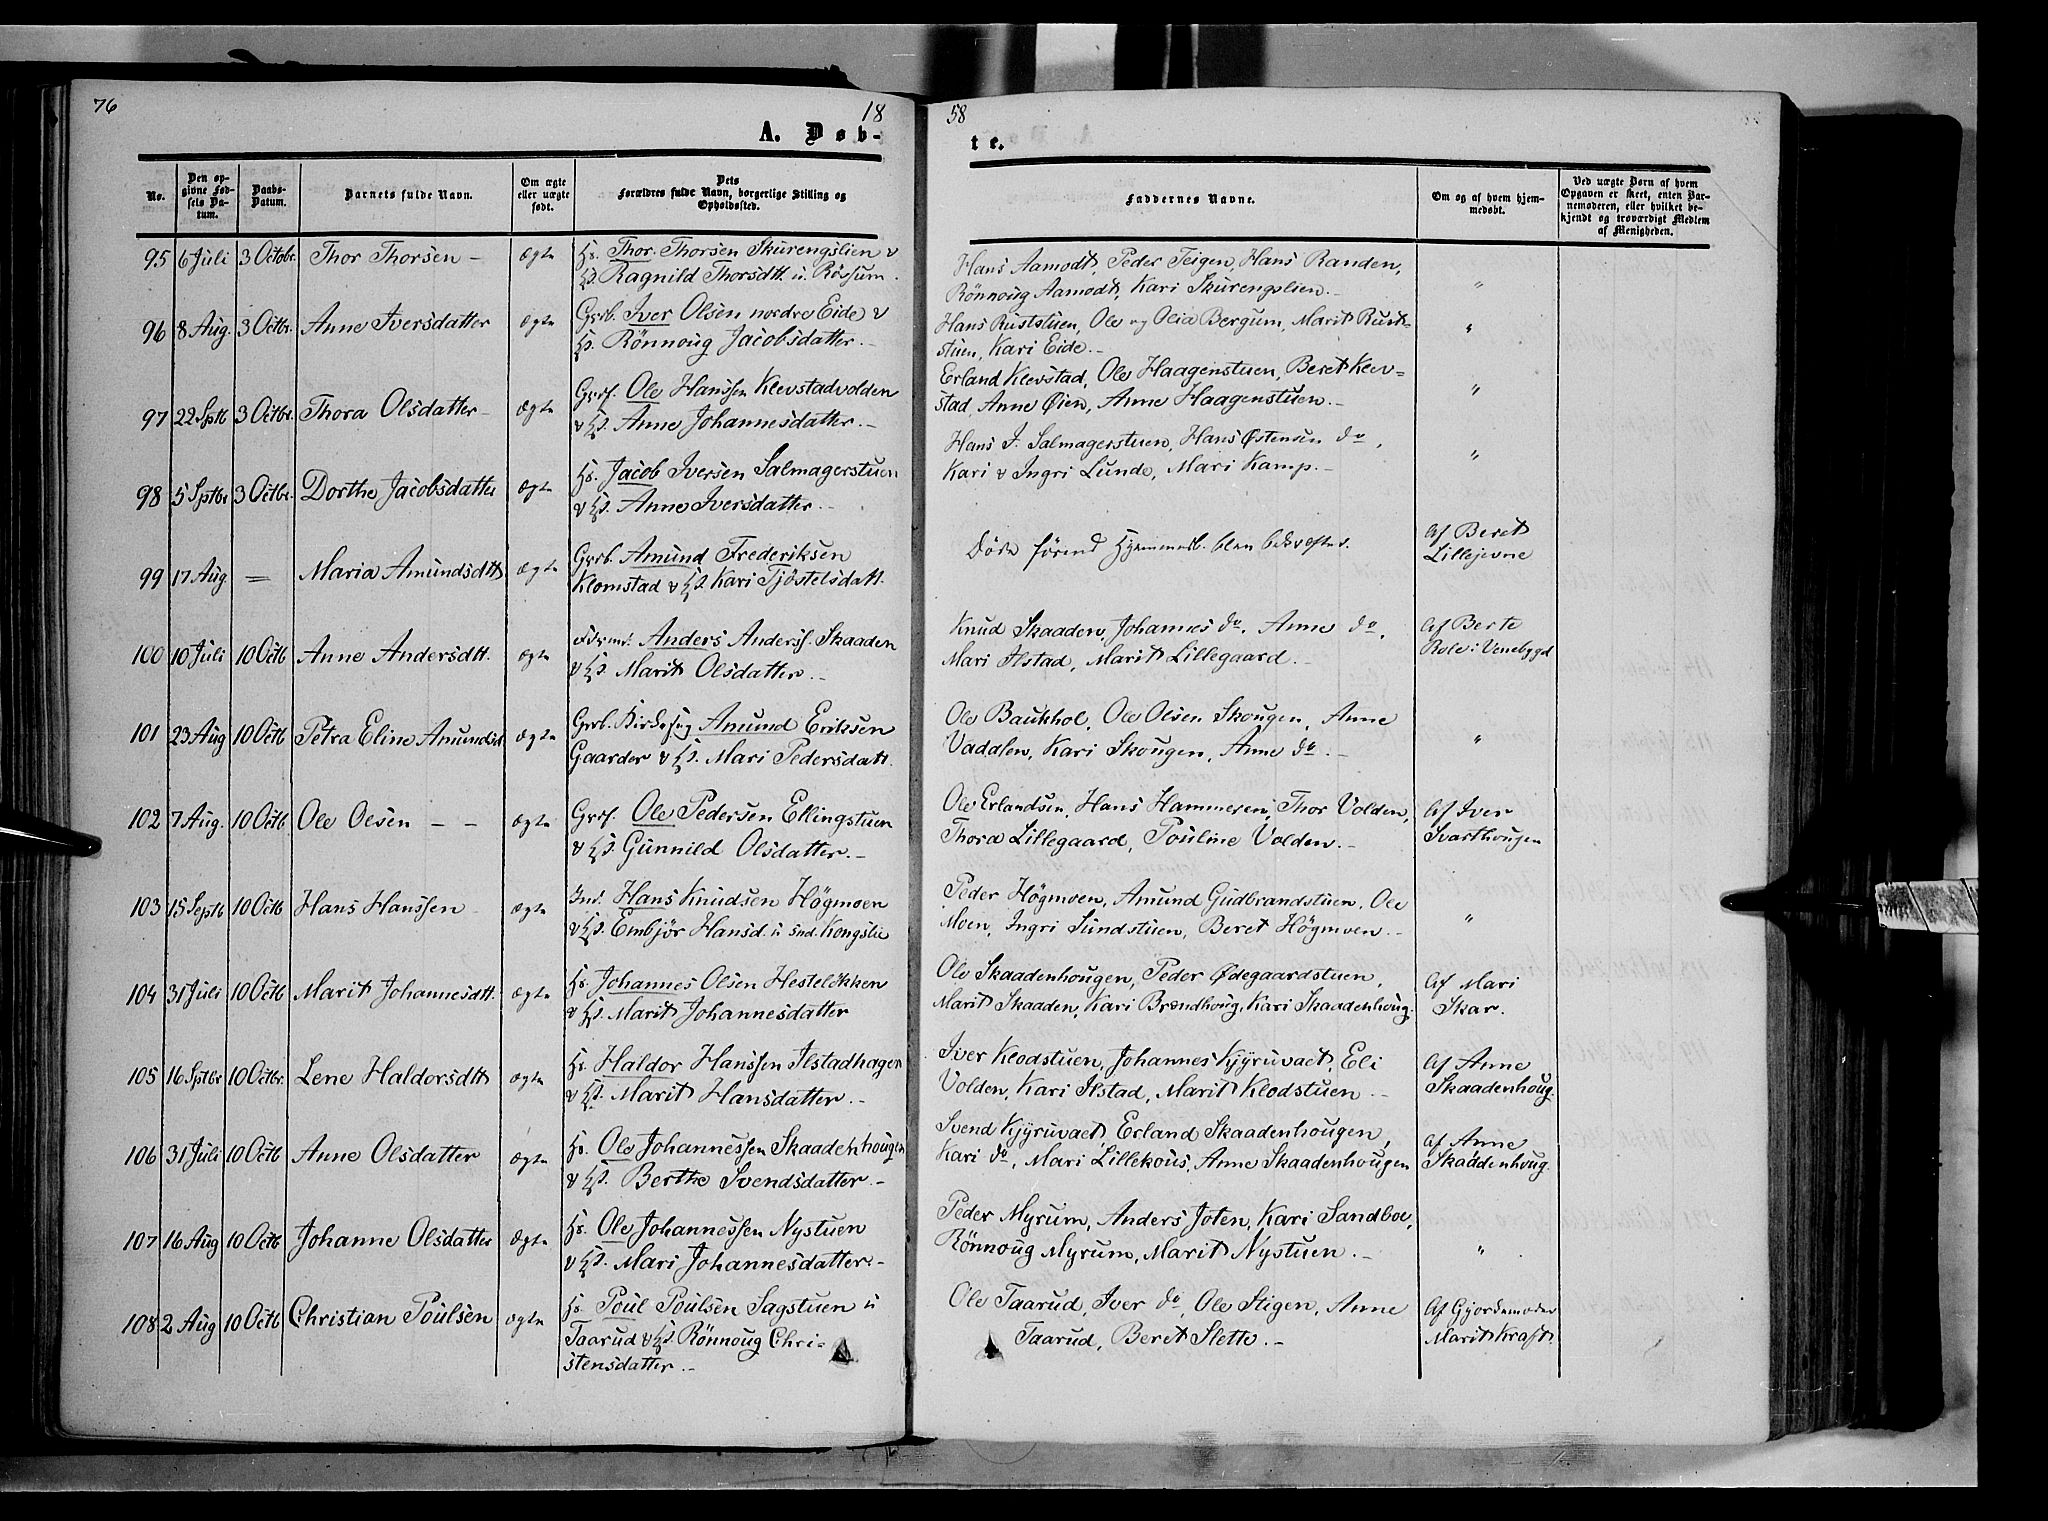 76
18
58
A. Døb-
te.
No.
Den opgivne Fødsels Datum.
Daabs-Datum.
Barnets fulde Navn.
Om ægte eller uægte født.
Dets Forældres fulde Navn, borgerlige Stilling og Opholdssted.
Faddernes Navne.
Om og af hvem hjemmedøbt.
Ved uægte Børn af hvem Opgaven er skeet, enten Barnemoderen, eller hvilket bekjendt og troværdigt Medlem af Menigheden.
95 6 Juli 3 Octobr. Thor Thorsen - ægte Hs. Thor Thorsen Skurengslien &
Ragnild Thorsdtt. u. Rössum.
Hans Aamodt, Peder Teigen, Hans Randen,
Rönnoug Aamodt, Kari Skurengslien. "
96 8 Aug. 3 Octbr. Anne Iversdatter ægte Grb. Iver Olsen nordre Eide &
Rönnoug Jacobsdatter.
Hans Ruststuen, Ole og Olia Bergum, Marit Rust-
stuen, Kari Eide. "
97 22 Sptb 3 Octbr. Thora Olsdatter ægte Grf. Ole Hanssen Klevstadvolden
& Anne Johannesdatter.
Erland Klevstad, Ole Haagenstuen, Beret Klev=
stad, Anne Øien, Anne Haagenstuen. "
98 5 Sptbr 3 Octbr. Dorthe Jacobsdatter ægte Hs. Jacob Iversen Salmagerstuen
& Anne Iversdatter.
Hans J. Salmagerstuen, Hans Østensen do,
Kari & Ingri Lunde, Mari Kamp. "
99 17 Aug = Maria Amundsdtt ægte Grb. Amund Frederiksen
Klomstad & Kari Tjöstelsdatt.
Döde förend Hjemmed. blev bekræftet. Af Beret
Lillejevne
100 10 Juli 10 Octb Anne Andersdtt. ægte Anders Anders. Skaaden
& Marit Olsdatter.
Knud Skaaden, Johannes do, Anne do,
Mari Ilstad, Marit Lillegaard. Af Berte
Role i Venebygd
101 23 Aug 10 Octb Petra Eline Amundsd ægte Grb. Kirkes. Amund Eriksen
Gaarder & Mari Pedersdatt.
Ole Baukhol, Ole Olsen Skougen, Anne
Vadalen, Kari Skougen, Anne do. "
102 7 Aug. 10 Octb Ole Olsen - - ægte Grf. Ole Pedersen Ellingstuen
& Gunnild Olsdatter.
Ole Erlandsen, Hans Hammeren, Thor Volden,
Thora Lillegaard, Pouline Volden. Af Iver
Svarthougen
103 15 Septb 10 Octb Hans Hanssen ægte Ind. Hans Knudsen Högmoen
& Embjör Hansd. u snd. Kongslie
Peder Högmoen, Amund Gudbrandstuen, Ole
Moen, Ingri Sundstuen, Beret Högmoen. "
104 31 Juli 10 Octb Marit Johannesdtt. ægte Hs. Johannes Olsen Hestelökken
& Marit Johannesdatter
Ole Skaadenhougen, Peder Ødegaardstuen,
Marit Skaaden, Kari Brændhoug, Kari Skaadenhoug. Af Mari
Skar.
105 16 Sptbr 10 Octbr. Lene Haldorsdtt ægte Hs. Haldor Hanssen Ilstadhagen
& Marit Hansdatter.
Iver Klodstuen, Johannes Kjyruvaet, Eli
Volden, Kari Ilstad, Marit Klodstuen. Af Anne
Skaadenhoug.
106 31 Juli 10 Octb Anne Olsdatter ægte Hs. Ole Johannessen Skaadenhougen
& Berthe Svendsdatter.
Svend Kjyruvaet, Erland Skaadenhougen,
Kari do, Mari Lillekous, Anne Skaadenhougen Af Anne
Skaadenhoug.
107 16 Aug 10 Octb Johanne Olsdatter ægte Hs. Ole Johannessen Nystuen
& Mari Johannesdatter.
Peder Myrum, Anders Joten, Kari Sandboe,
Rönnoug Myrum, Marit Nystuen. "
108 2 Aug 10 Octb Christian Poulsen ægte Hs. Poul Poulsen Sagstuen u
Taarud & Rönnoug Chri-
stensdatter.
Ole Taarud, Iver do, Ole Stigen, Anne
Taarud, Beret Slette. Af Gjordemoder
Marit Kraft.